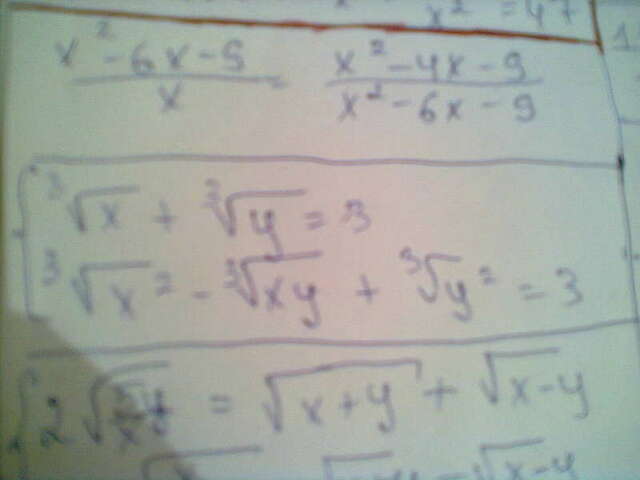 x² = 47
x² - 6x - 9 / x = x² - 4x - 9 / x² - 6x - 9
∛x + ∛y = 3
∛x² - ∛xy + ∛y² = 3
2√ = √x+y + √x-y
√x-y